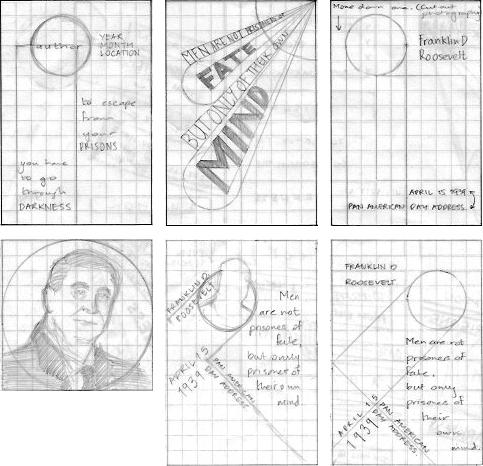 author
YEAR
MONTH
LOCATION
to escape
from
your
PRISONS
you have
to go
through
DARKNESS
MEN ARE NOT PRISONERS OF
FATE
BUT ONLY OF THEIR OWN
MIND
Move down one. (Cut out
photograph)
Franklin D
Roosevelt
APRIL 15 1939
PAN AMERICAN DAY ADDRESS
FRANKLIN D
ROOSEVELT
Men
are not
prisones of
fate,
but only
prisoner of
their own
mind.
APRIL 15
1939
PAN AMERICAN
DAY ADDRESS
FRANKLIN D
ROOSEVELT
Men are not
prisones of
fate,
but only
prisones of
their
own
mind.
APRIL 15
1939
PAN AMERICAN
DAY ADDRESS